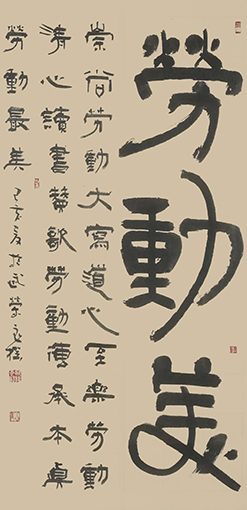 勞動美
崇尚勞動大寫道心至樂勞動
清心讀書贊歌勞動傳承本真
勞動最美 己亥夏於武榮